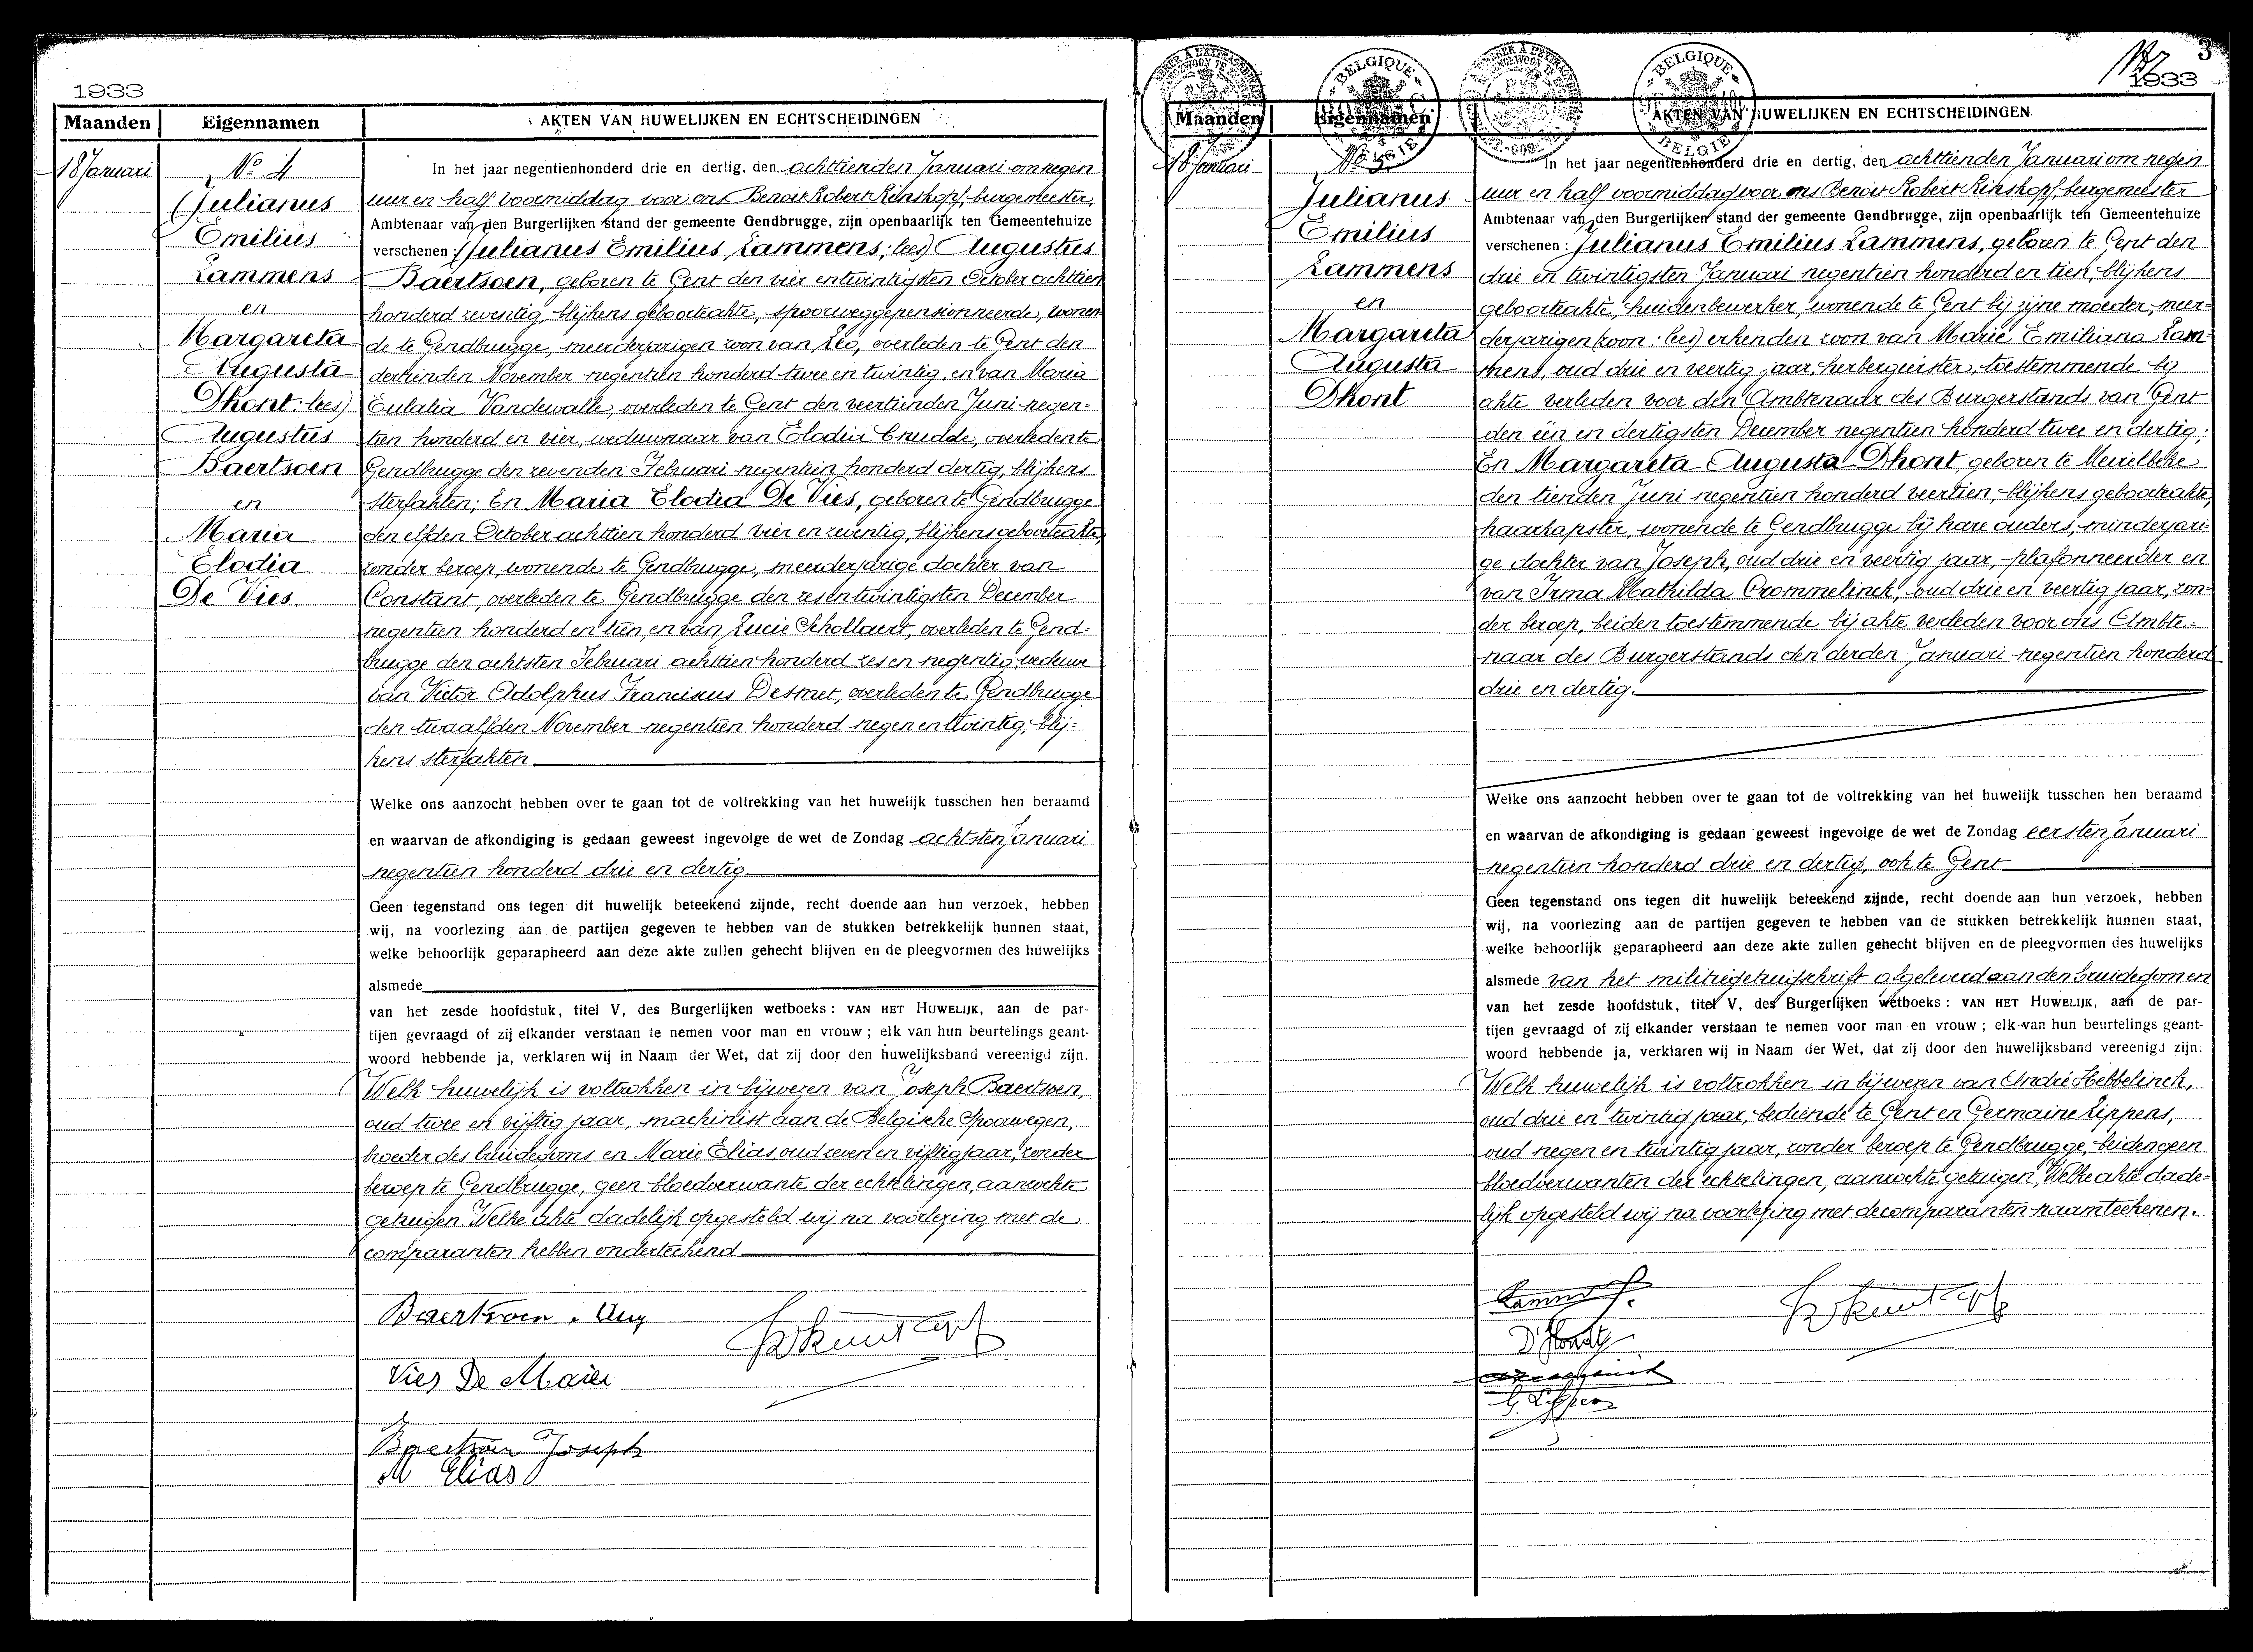 1933
Maanden
Eigennamen
AKTEN VAN HUWELIJKEN EN ECHTSCHEIDINGEN
18 Januari
No 4
(Julianus
Emilius
Lammens
en
Margareta
Augusta
Dhont: lees)
Augustus
Baertsoen
en
Maria
Elodia
De Vies.
In het jaar negentienhonderd drie en dertig, den achttienden Januari om negen
uur en half voormiddag voor ons Benoit Robert Rinskopf, burgemeester,
Ambtenaar van den Burgerlijken stand der gemeente Gendbrugge, zijn openbaarlijk ten Gemeentehuize
verschenen: (Julianus Emilius Lammens; lees) Augustus
Baertsoen, geboren te Gent den vier en twintigsten October achttien
honderd zeventig, blijkens geboorteakte, spoorweggepensionneerde, wonen-
de te Gendbrugge, meerderjarigen zoon van Leo, overleden te Gent den
dertienden November negentien honderd twee en twintig, en van Maria
Eulalia Vandewalle, overleden te Gent den veertienden Juni negen-
tien honderd en vier, weduwnaar van Elodia Cnudde, overleden te
Gendbrugge den zevenden Februari negentien honderd dertig, blijkens
sterfakten; En Maria Elodia De Vies, geboren te Gendbrugge
den elfden October achttien honderd vier en zeventig, blijkens geboorteakte,
zonder beroep, wonende te Gendbrugge, meerderjarige dochter van
Constant, overleden te Gendbrugge den zes en twintigsten December
negentien honderd en tien, en van Lucie Schollaert, overleden te Gend-
brugge den achtsten Februari achttien honderd zes en negentig, weduwe
van Victor Adolphus Franciscus Desmet, overleden te Gendbrugge
den twaalfden November negentien honderd negen en twintig, blij-
kens sterfakten
Welke ons aanzocht hebben over te gaan tot de voltrekking van het huwelijk tusschen hen beraamd
en waarvan de afkondiging is gedaan geweest ingevolge de wet de Zondag achtsten Januari
negentien honderd drie en dertig.
Geen tegenstand ons tegen dit huwelijk beteekend zijnde, recht doende aan hun verzoek, hebben
wij, na voorlezing aan de partijen gegeven te hebben van de stukken betrekkelijk hunnen staat,
welke behoorlijk geparapheerd aan deze akte zullen gehecht blijven en de pleegvormen des huwelijks
alsmede
van het zesde hoofdstuk, titel V, des Burgerlijken wetboeks: VAN HET HUWELIJK, aan de par-
tijen gevraagd of zij elkander verstaan te nemen voor man en vrouw; elk van hun beurtelings geant-
woord hebbende ja, verklaren wij in Naam der Wet, dat zij door den huwelijksband vereenigd zijn.
Welk huwelijk is voltrokken in bijwezen van Joseph Baertsoen,
oud twee en vijftig jaar, machinist aan de Belgische Spoorwegen,
broeder des bruidegoms en Marie Elias, oud zeven en vijftig jaar, zonder
beroep te Gendbrugge, geen bloedverwante der echtelingen, aanzochte
getuigen. Welke akte dadelijk opgesteld wij na voorlezing met de
comparanten hebben onderteekend
Baertsoen . Aug
Vies De Maria
Baertsoen Joseph
M Elias
3
1933
BELGIQUE
BELGIE
BELGIQUE
BELGIE
Maanden
Eigennamen
AKTEN VAN HUWELIJKEN EN ECHTSCHEIDINGEN
18 Januari
No 5
Julianus
Emilius
Lammens
en
Margareta
Augusta
Dhont
In het jaar negentienhonderd drie en dertig, den achttienden Januari om negen
uur en half voormiddag voor ons Benoit Robert Rinskopf, burgemeester
Ambtenaar van den Burgerlijken stand der gemeente Gendbrugge, zijn openbaarlijk ten Gemeentehuize
verschenen: Julianus Emilius Lammens, geboren te Gent den
drie en twintigsten Januari negentien honderd en tien, blijkens
geboorteakte, huidenbewerker, wonende te Gent bij zijne moeder, meer-
derjarigen (zoon: lees) erkenden zoon van Marie Emiliana Lam-
mens, oud drie en veertig jaar, herbergierster, toestemmende bij
akte verleden voor den Ambtenaar des Burgerstands van Gent
den één en dertigsten December negentien honderd twee en dertig;
En Margareta Augusta Dhont, geboren te Meirelbeke
den tienden Juni negentien honderd veertien, blijkens geboorteakte,
haarkapster, wonende te Gendbrugge bij hare ouders, minderjari-
ge dochter van Joseph, oud drie en veertig jaar, plafonneerder en
van Irma Mathilda Crommelinck, oud drie en veertig jaar, zon-
der beroep, beiden toestemmende bij akte verleden voor ons Ambte-
naar des Burgerstands den derden Januari negentien honderd
drie en dertig.
Welke ons aanzocht hebben over te gaan tot de voltrekking van het huwelijk tusschen hen beraamd
en waarvan de afkondiging is gedaan geweest ingevolge de wet de Zondag eersten Januari
negentien honderd drie en dertig, ook te Gent
Geen tegenstand ons tegen dit huwelijk beteekend zijnde, recht doende aan hun verzoek, hebben
wij, na voorlezing aan de partijen gegeven te hebben van de stukken betrekkelijk hunnen staat,
welke behoorlijk geparapheerd aan deze akte zullen gehecht blijven en de pleegvormen des huwelijks
alsmede van het militiegetuigschrift afgeleverd aan den bruidegom en
van het zesde hoofdstuk, titel V, des Burgerlijken wetboeks: VAN HET HUWELIJK, aan de par-
tijen gevraagd of zij elkander verstaan te nemen voor man en vrouw; elk van hun beurtelings geant-
woord hebbende ja, verklaren wij in Naam der Wet, dat zij door den huwelijksband vereenigd zijn.
Welk huwelijk is voltrokken in bijwezen van André Hebbelinck,
oud drie en twintig jaar, bediende te Gent en Germaine Lippens,
oud negen en twintig jaar, zonder beroep te Gendbrugge, beiden geen
bloedverwanten der echtelingen, aanzochte getuigen. Welke akte dade-
lijk opgesteld wij na voorlezing met de comparanten naamteekenen.
D'hondt
G. Lippens